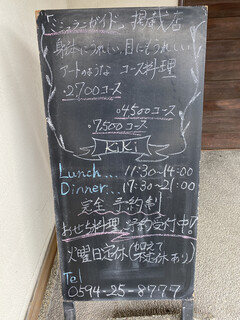 「ミシュランガイド」掲載店
身体にうれしい、目にもうれしい
アートのような コース料理
・2700コース
・4500コース
・7500コース
KiKi
Lunch...11:30~14:00
Dinner...17:30~21:00
完全予約制
おせち料理 予約受付中!
火曜日定休(加えて不定休あり)
Tel
0594-25-8777